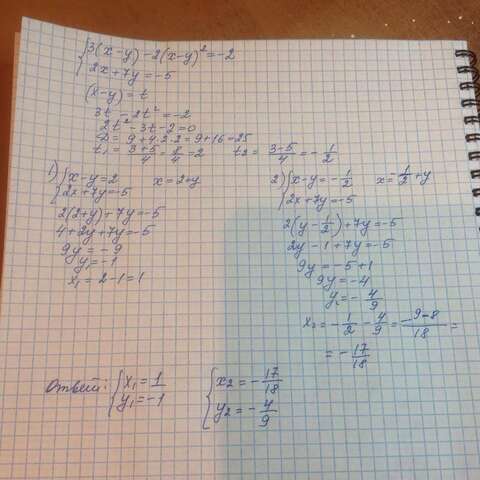 {3(x-y)-2(x-y)²=-2
{2x+7y=-5
(x-y)=t
3t-2t²=-2
2t²-3t-2=0
D=9+4·2·2=9+16=25
t₁=(3+5)/4=8/4=2 t₂=(3-5)/4=-1/2
1) {x-y=2 x=2+y
{2x+7y=-5
2(2+y)+7y=-5
4+2y+7y=-5
9y=-9
y₁=-1
x₁=2-1=1
2) {x-y=-1/2 x=-1/2+y
{2x+7y=-5
2(y-1/2)+7y=-5
2y-1+7y=-5
9y=-5+1
9y=-4
y₂=-4/9
x₂=-1/2-4/9=(-9-8)/18=
=-17/18
Ответ: {x₁=1 {x₂=-17/18
{y₁=-1 {y₂=-4/9